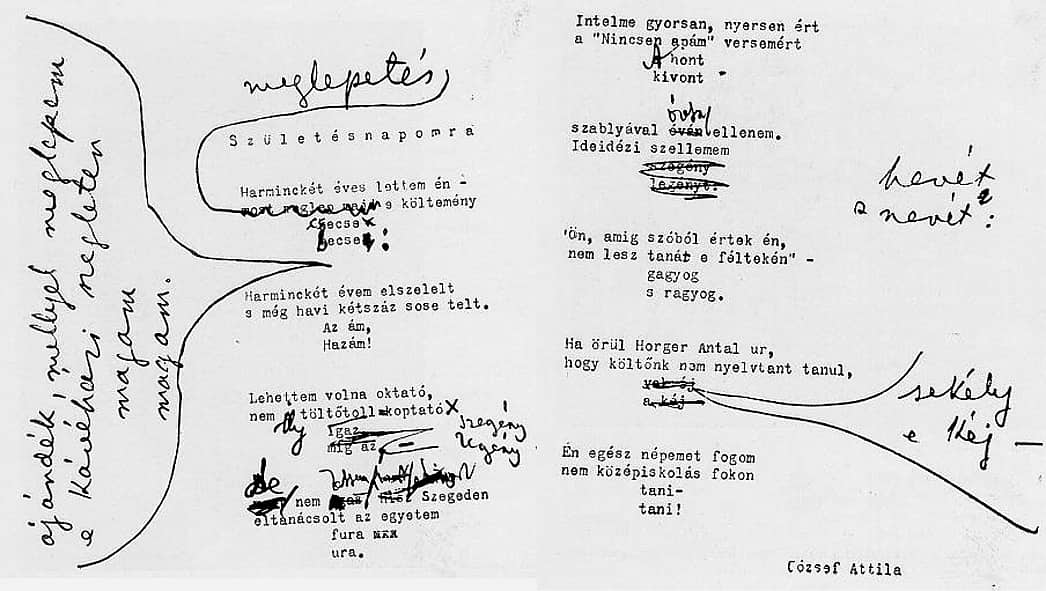 meglepetés
Születésnapomra
Harminckét éves lettem én -
meglep e költemény
csecse
becse:
ajándék, mellyel meglepem
e kávéházi szegleten
magam
magam.
Harminckét évem elszelelt
s még havi kétszáz sose telt.
Az ám,
Hazám!
Lehettem volna oktató,
nem ily töltőtoll koptató
Igaz
míg az
szegény
legény
De nem Szegeden
eltanácsolt az egyetem
fura
ura.
Intelme gyorsan, nyersen ért
a "Nincsen apám" versemért
A hont
kivont
szablyával óvta ellenem.
Ideidézi szellemem
szegény
legényt.
hevét
s nevét:
"Ön, amig szóból értek én,
nem lesz tanár e féltekén" -
gagyog
s ragyog.
Ha örül Horger Antal ur,
hogy költőnk nem nyelvtant tanul,
a kéj
sekély
e kéj —
Én egész népemet fogom
nem középiskolás fokon
tani-
tani!
József Attila